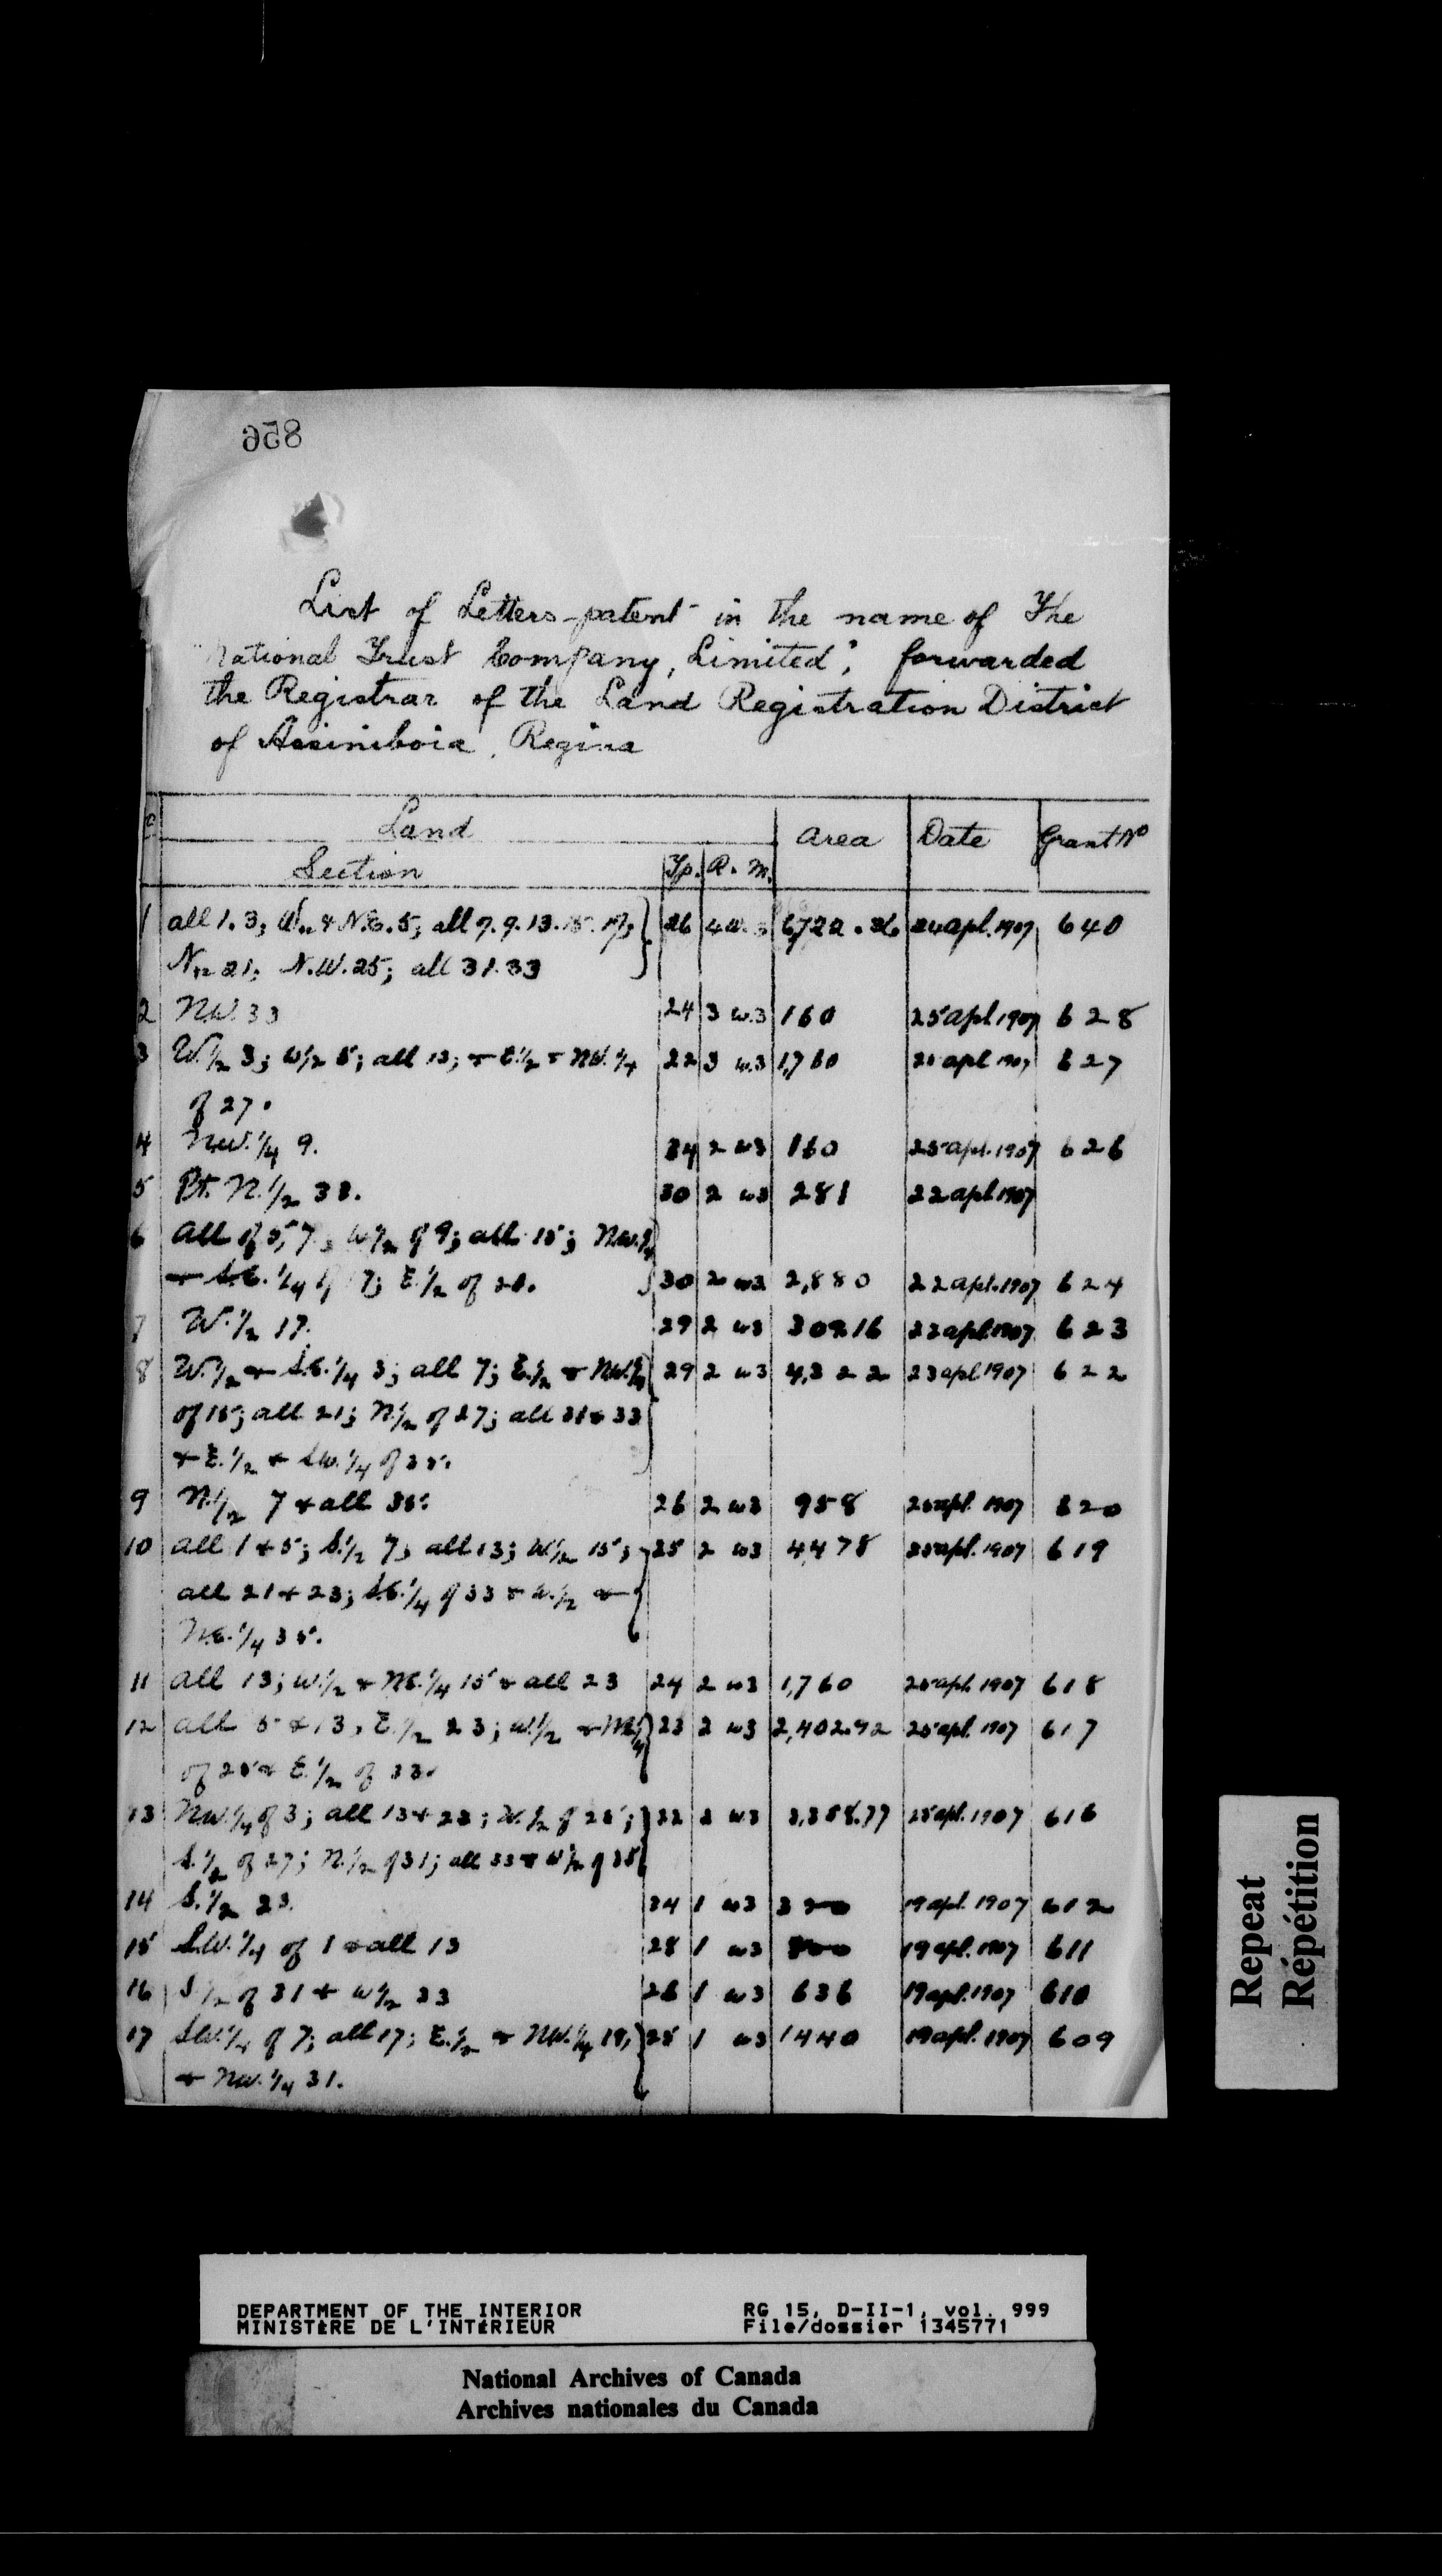 856
List of Letters-patent in the name of The
"National Trust Company, Limited", forwarded
the Registrar of the Land Registration District
of Assiniboia, Regina
No Land Area Date Grant No
Section Tp. R. M.
1 all 1.3; W½ & N.E. 5; all 7. 9. 13. 15. 17; 26 4 w. 3 6,722.36 24 apl. 1907 640
N½ 21; N.W. 25; all 31. 33
2 NW. 33 24 3 w.3 160 25 apl 1907 628
3 W.½ 3; W½ 5; all 13; + E.½ + NW.¼ 22 3 w.3 1,760 25 apl 1907 627
of 27.
4 NW.¼ 9. 24 2 w3 160 25 apl. 1907 626
5 Pt. N.½ 33. 30 2 w3 281 22 apl 1907
6 all of 5, 7, W½ of 9; all 15; NW.¼
+ S.E. ¼ of 17; E.½ of 30 2 w3 2,880 22 apl. 1907 624
7 W.½ 17. 29 2 w3 309.16 23 apl 1907 623
8 W.½ + S.E.¼ 3; all 7; E.½ + NW.¼ 29 2 w3 4,322 23 apl 1907 622
of 15; all 21; N.½ of 27; all 31 + 33
+ E.½ + S.W.¼ of 35.
9 N.½ 7 + all 35. 26 2 w3 958 25 apl. 1907 620
10 all 1 + 5; S.½ 7; all 13; W.½ 15; 25 2 w3 4,478 25 apl. 1907 619
all 21 + 23; S.E.¼ of 33 + W.½ +
N.E.¼ 35.
11 all 13; W.½ + NE.¼ 15 + all 23 24 2 w3 1,760 25 apl. 1907 618
12 all 5 + 13, E.½ 23; W.½ + NE.¼ 23 2 w3 2,402.92 25 apl. 1907 617
of 25 + E.½ of 33.
13 NW.¼ of 3; all 13 + 23; W.½ of 25; 22 2 w3 3,358.77 25 apl. 1907 616
S.½ of 27; N.½ of 31; all 33 + W½ of 35
14 S.½ 23. 24 1 w3 320 19 apl. 1907 612
15 S.W.¼ of 1 + all 13 28 1 w3 800 19 apl. 1907 611
16 S.½ of 31 + W½ 33 26 1 w3 636 19 apl. 1907 610
17 S.W.¼ of 7; all 17; E.½ + NW.¼ 19, 25 1 w3 1440 19 apl. 1907 609
+ NW.¼ 31.
Repeat
Répétition
DEPARTMENT OF THE INTERIOR RG 15, D-II-1, vol. 999
MINISTÈRE DE L'INTÉRIEUR File/dossier 1345771
National Archives of Canada
Archives nationales du Canada